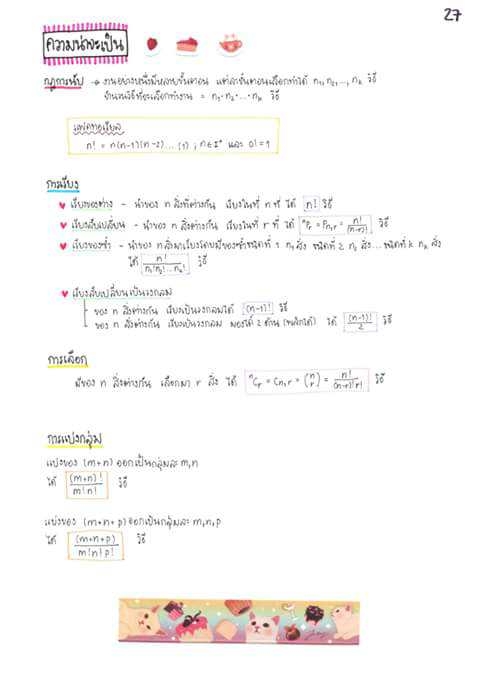 27
ความน่าจะเป็น
กฎการนับ → งานอย่างหนึ่งมีหลายขั้นตอน แต่ละขั้นตอนเลือกทำได้ n₁,n₂,..., nₖ วิธี
จำนวนวิธีที่จะเลือกทำงาน = n₁·n₂·...·nₖ วิธี
แฟคทอเรียล
n! = n(n-1)(n-2)...(1) ; n∈I⁺ และ 0! = 1
การเรียง
เรียงของต่าง - นำของ n สิ่งที่ต่างกัน เรียงในที่ n ที่ ได้ n! วิธี
เรียงสับเปลี่ยน - นำของ n สิ่งต่างกัน เรียงในที่ r ที่ ได้ ⁿPᵣ = Pn,r = n!/(n-r)! วิธี
เรียงของซ้ำ - นำของ n สิ่งมาเรียงโดยมีของซ้ำชนิดที่ 1 n₁ สิ่ง ชนิดที่ 2 n₂ สิ่ง... ชนิดที่ k nₖ สิ่ง
ได้ n!/n₁!n₂!...nₖ! วิธี
เรียงสับเปลี่ยนเป็นวงกลม
ของ n สิ่งต่างกัน เรียงเป็นวงกลมได้ (n-1)! วิธี
ของ n สิ่งต่างกัน เรียงเป็นวงกลม มองได้ 2 ด้าน (พลิกได้) ได้ (n-1)!/2 วิธี
การเลือก
มีของ n สิ่งต่างกัน เลือกมา r สิ่ง ได้ ⁿCᵣ = Cn,r = (n r) = n!/(n-r)!r! วิธี
การแบ่งกลุ่ม
แบ่งของ (m+n) ออกเป็นกลุ่มละ m,n
ได้ (m+n)!/m!n! วิธี
แบ่งของ (m+n+p) ออกเป็นกลุ่มละ m,n,p
ได้ (m+n+p)/m!n!p! วิธี